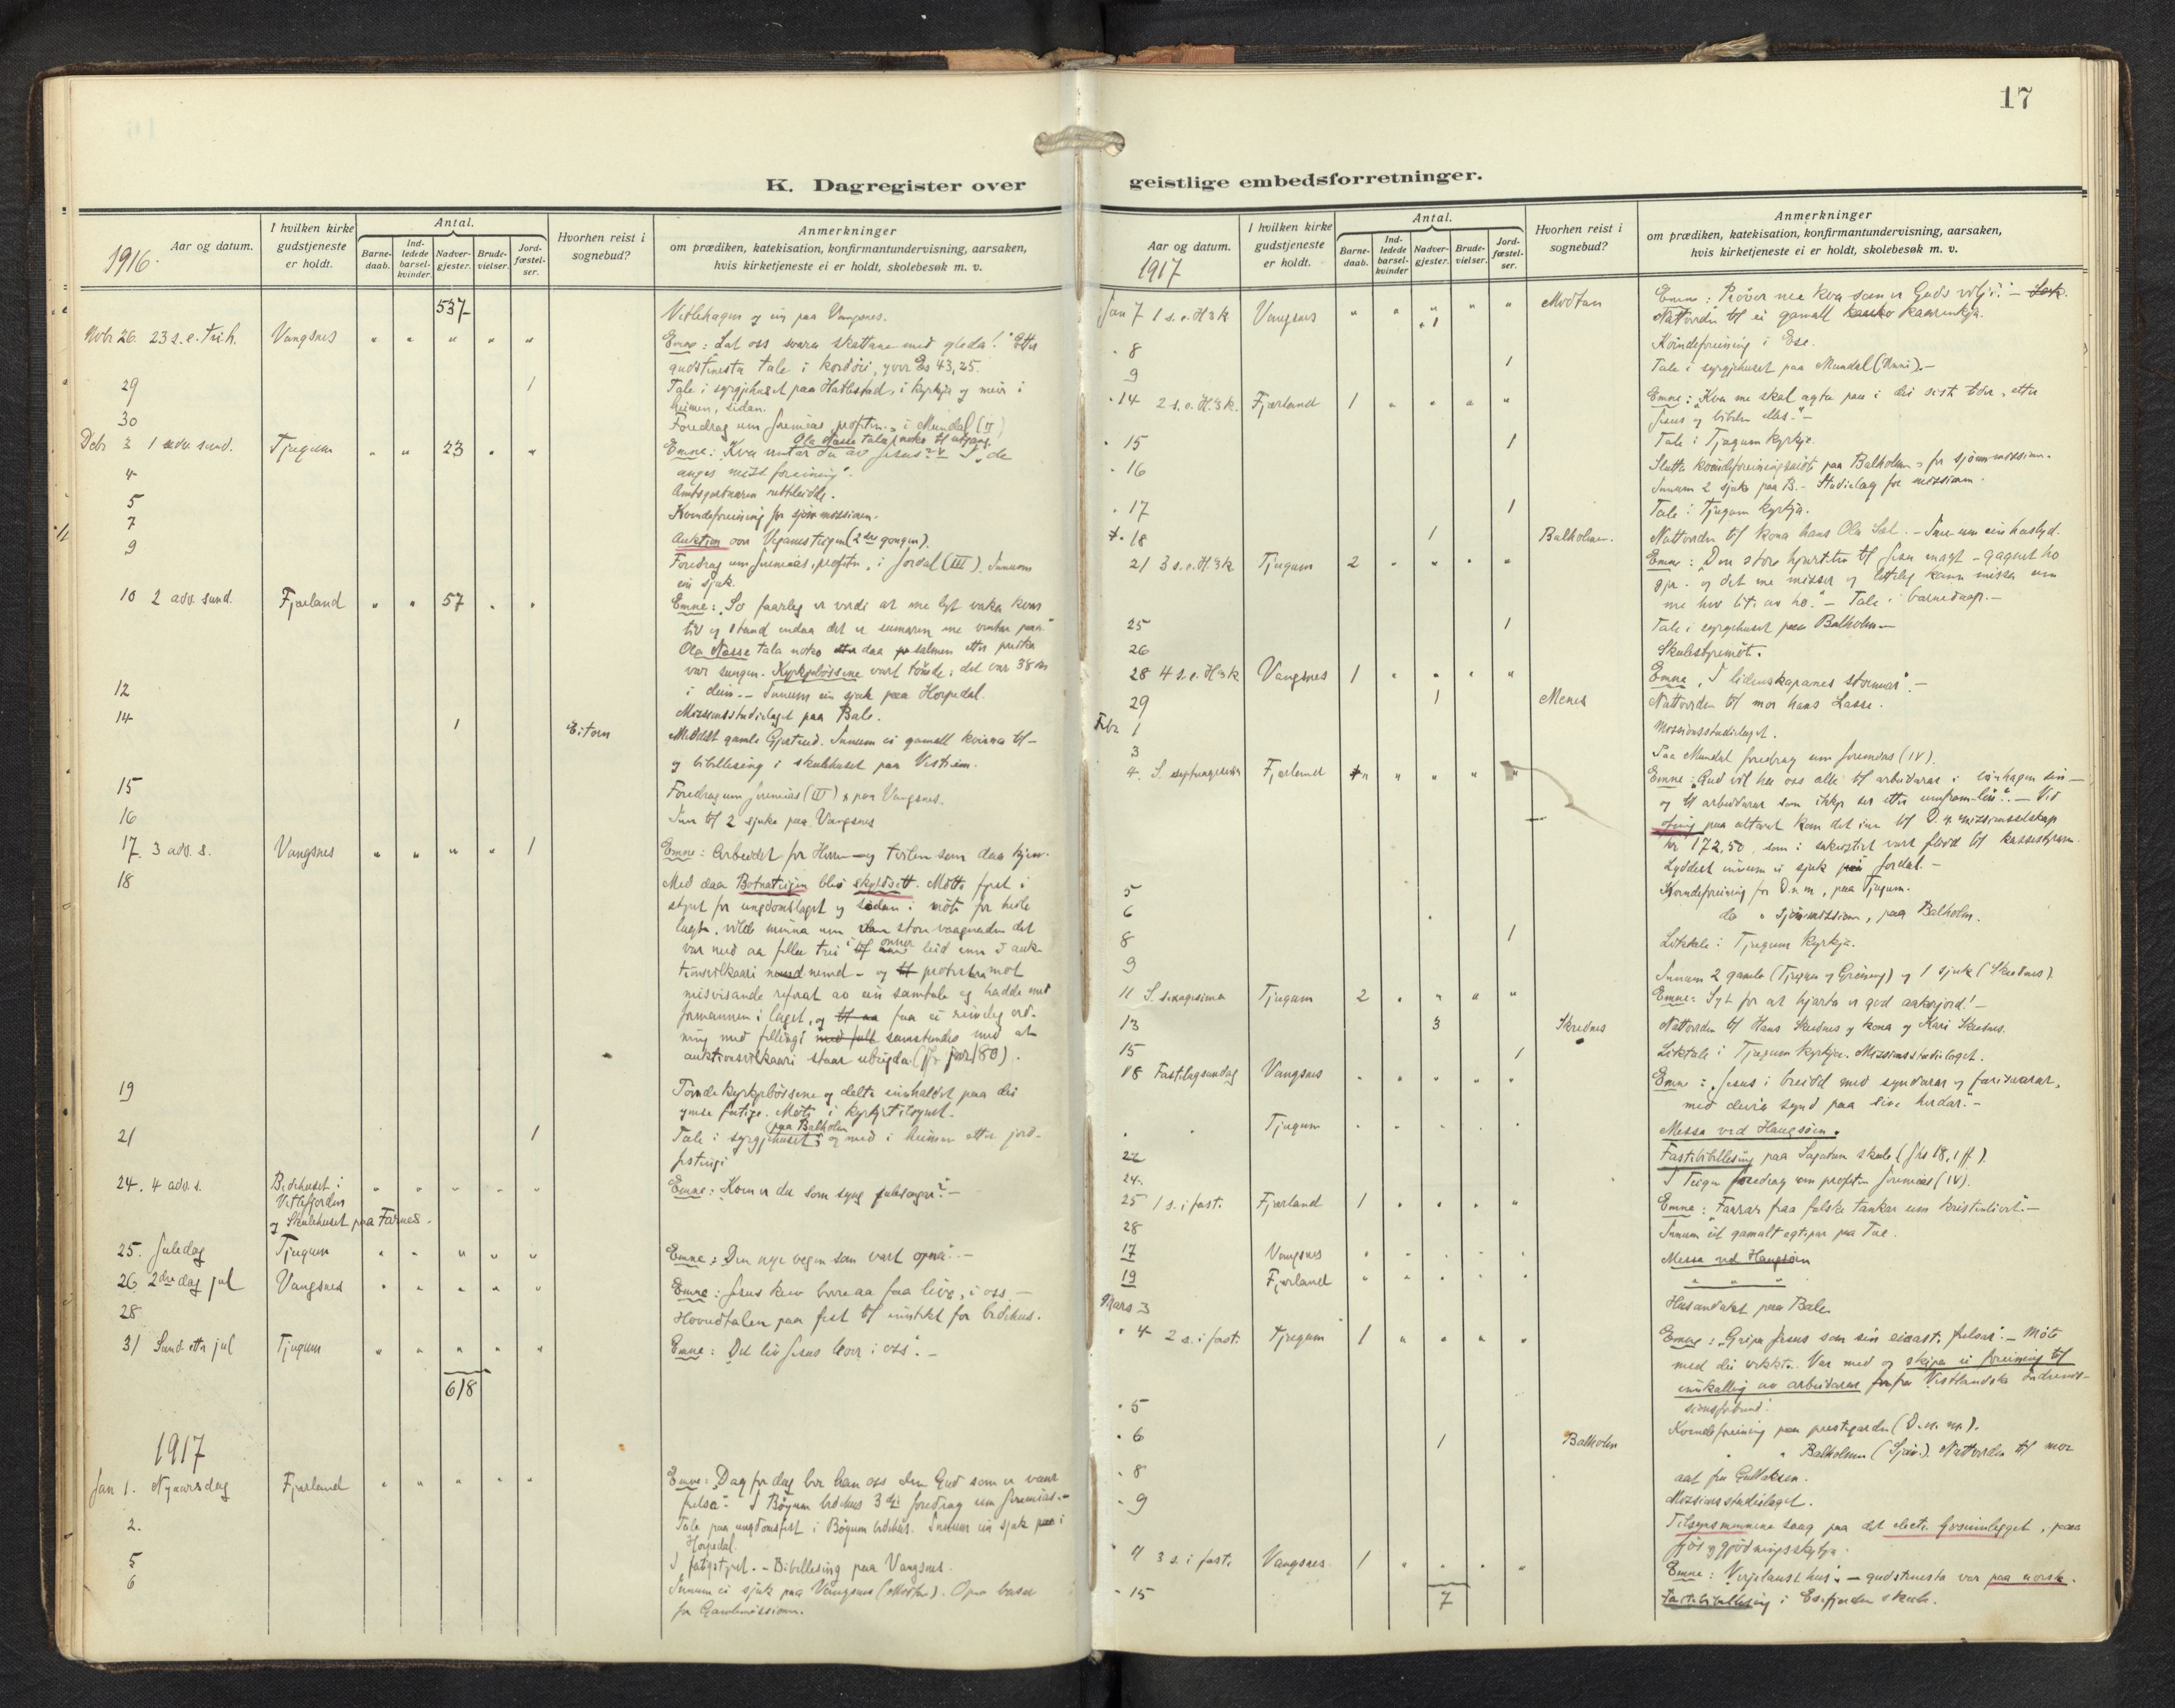 17
K. Dagregister over
Aar og datum.
1916.
I hvilken kirke gudstjeneste er holdt.
Antal.
Barne-daab.
Ind-ledede barsel-kvinder.
Nadver-gjester.
Brude-vielser.
Jord-fæstel-ser.
Hvorhen reist i sognebud?
Anmerkninger
om prædiken, katekisation, konfirmantundervisning, aarsaken,
hvis kirketjeneste ei er holdt, skolebesøk m. v.
537
Vetlehagen og ein paa Vangsnes.
Novbr. 26. 23 s. e. Trih. Vangsnes " " " " " Emne: Lat oss svara skattane med gleda! Etter
gudstenesta tale i kordøri, yver Es 43,25.
29 1 Tale i syrgjehuset paa Hatlestad, i kyrkja og meir i
heimen, sidan.
30 Foredrag um Jeremias, profeten, i Mundal (II)
Ola Næsse tala noko til utgang.
Debr 3 1 adv. sund. Tjugum " " 23 " " Emne: Kva ventar du av Jesus? I "de
4 unges misjforeining".
5
7 Kvindeforeining for sjømissionen.
9 Auktion over Veganesteigen (2dre gongen).
Foredrag um Jeremias, profeten, i Jordal (III). Innum
ein sjuk.
10 2 adv. sund. Fjærland " " 57 " " Emne: So faarleg er verdi at me lyt vaka kvar
tid og stund endaa det er sumaren me ventar paa.
Ola Næsse tala noko daa salmen etter preika
var sungen. Kyrkjebössene vart tömde; det var 38 kr
12 i deim. - Innum ein sjuk paa Horpedal.
14 1 Eitorn Missionsstudielaget paa Bale.
Innum ei gamall kvinna til -
og bibellesing i skulehuset paa
15 Foredrag um Jeremias (III) paa Vangsnes.
16 Inn til 2 sjuke paa Vangsnes
17. 3 adv. s. Vangsnes " " " " 1 Emne: Arbeidet for Herren og tvilen som daa kjem.
18 Med daa Botnateigen blei skyldsett. Møtte fyrst i
styret for ungdomslaget og sidan i möte for heile
laget, vilde minna um den store vaagnaden det
var med aa fella trei i onnor leid enn i auk-
tionsvilkaari nemd - og protestera mot
misvisande referat av ein samtale eg hadde med
formannen i laget, og faa ei rimeleg ord-
ning med fellingi samstundes med at
auktionsvilkaari staar ubrigda (Jfr. /80).
19 Tömde kyrkjebössene og delte innhaldet paa dei
ymse fatige. Möte i kyrkjetilsynet.
21 1 Tale i syrgjehuset paa Balholm og med i heimen etter jord-
festingi
24. 4 adv. s. Bedehuset i Vetlefjorden og Skulehuset paa Farnes. " " " " " Emne: Kven er du som syng julesongar? -
25. Juledag Tjugum " " " " " Emne: Den nye vegen som vart opna. -
26 2dre dag jul Vangsnes " " " " " Emne: Jesus kan berre aa faa liva i oss. -
28 Hovudtalen paa fest til inntekt for bedehus.
31 Sund. etter jul Tjugum " " " " " Emne: Det liv Jesus lever i oss. -
618
1917
Jan 1. Nyaarsdag Fjærland " " " " " Emne: Dag for dag ber han oss den Gud som er vaar
frelse. I Bøyum bedehus 3dje foredrag um Jeremias. -
2. Tale paa ungdomsfest i Bøyum bedehus. Innum ein sjuk i
Horpedal.
5 I fatigstyret. - Bibellesing paa Vangsnes.
6 Innum ei sjuk paa Vangsnes (Modtun). Opna basar
for
geistlige embedsforretninger.
Aar og datum.
1917
I hvilken kirke gudstjeneste er holdt.
Antal.
Barne-daab.
Ind-ledede barsel-kvinder
Nadver-gjester.
Brude-vielser.
Jord-fæstel-ser.
Hvorhen reist i sognebud?
Anmerkninger
om prædiken, katekisation, konfirmantundervisning, aarsaken,
hvis kirketjeneste ei er holdt, skolebesøk m. v.
Jan 7 1 s. e. H3k Vangsnes " " " " " Modtun Emne: Pröver me kva som er Guds vilje. -
1 Nattverden til ei gamall kaarenkja.
8 Kvindeforeining i Ese.
9 1 Tale i syrgjehuset paa Mundal -
14 2 s. e. H.3k. Fjærland 1 " " " " Emne: Kva me skal agta paa i dei siste tider, etter
Jesus og bibelen elles. -
15 1 Tale i Tjugum kyrkje.
16 Slutta kvindeforeiningsmöte paa Balholm for sjömannsmission.
Innum 2 sjuke paa B. - Studielag for mission.
17 1 Tale i Tjugum kyrkja.
18 1 Balholmen. Nattverden til kona hans Ola
21 3 s. e. H.3k Tjugum 2 " " " " Emne: Den store hjartetru til Jesu magt - gagnet ho
gjer - og det me misser og letteleg kann missa um
me hev lite av ho. - Tale i barnedaap. -
25 1 Tale i syrgjehuset paa Balholm. -
26 Skulestyremöt.
28 4 s. e. H3k Vangsnes 1 " " " " Emne I lidenskapanes stormar. -
29 1 Menes Nattverden til mor hans Lasse.
Febr 1 Missionsstudielaget.
3 Paa Mundal foredrag um Jeremias (IV).
4. S. septuagesima Fjærland " " " " " Emne: Gud vil ha oss alle til arbeidarar i vinhagen sin -
og til arbeidarar som ikkje ser etter umframløn. - Ved
ofring paa altaret kom det inn til D. n. missionsselskap
kr 172,50, som i sakristiet vart flødd til kassestyraren.
Lyddest innum ei sjuk Jordal. -
5 Kvindeforeining for D.n.m., paa Tjugum.
6 do " Sjömissionen, paa Balholm.
8 1 Liktale i Tjugum kyrkje.
9 Innum 2 gamle (Tjugum og Gröneng) og 1 sjuk (Skrednes)
11 S. sexagesima Tjugum 2 " " " " Emne: Syt for at hjarta er god aakerjord! -
13 3 Skrednes Nattverden til Hans Skrednes og kona og Kari Skrednes.
15 1 Liktale i Tjugum kyrkje. Missionsstudielaget.
18 Fastelagsundag Vangsnes " " " " " Emne: Jesus i breidd med syndarar og farisearar,
med deira synd paa sine herdar. -
" " Tjugum " " " " " Messa ved Haugsøen.
22 Fastebibellesing paa Sagatun skule (Joh 18, 1 ff).
24. I Teigen foredrag um profeten Jeremias (IV).
25 1 s. i fast. Fjærland 1 " " " " Emne: Faarar fraa falske tankar um kristenlivet. -
28 Innum eit gamalt egtepar paa Tue.
17 Vangsnes " " " " " Messa ved Haugsøen
19 Fjærland " " " " " " " "
Mars 3 Husandakt paa Bale
4 2 s. i fast. Tjugum 1 " " " " Emne: Gripa Jesus som sin einaste frelsar. - Möte
med dei vekkte. Var med og skipa ei foreining til
innkalling av arbeidarar fraa Vestlandske Indremis-
sionsforbund.
5 Kvindeforeining paa prestgarden (D.n.m.).
6 1 Balholm " " Balholmen (Sjöm.). Nattverden til mor
aat fru
8 Missionsstudielaget.
9 Tilsynsmennene saag paa det electr. lysinnlegget, paa
fjös og gjödningskjeller.
11 3 s. i fast. Vangsnes 1 " " " " Emne: Verjelaust hus. - gudstenesta var paa norsk.
15 7 Fastebibellesing i Esefjorden skule.